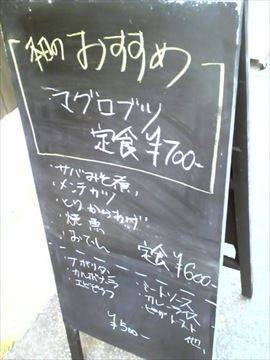 本日の おすすめ
マグロブツ
定食 ¥700-
・サバみそ煮
・メンチカツ
・とりからあげ
・焼魚
・おでん
定食 ¥600-
・ナポリタン
・カルボナーラ
・エビピラフ
・ミートソース
・カレーライス
・ピザトースト
他
¥500-